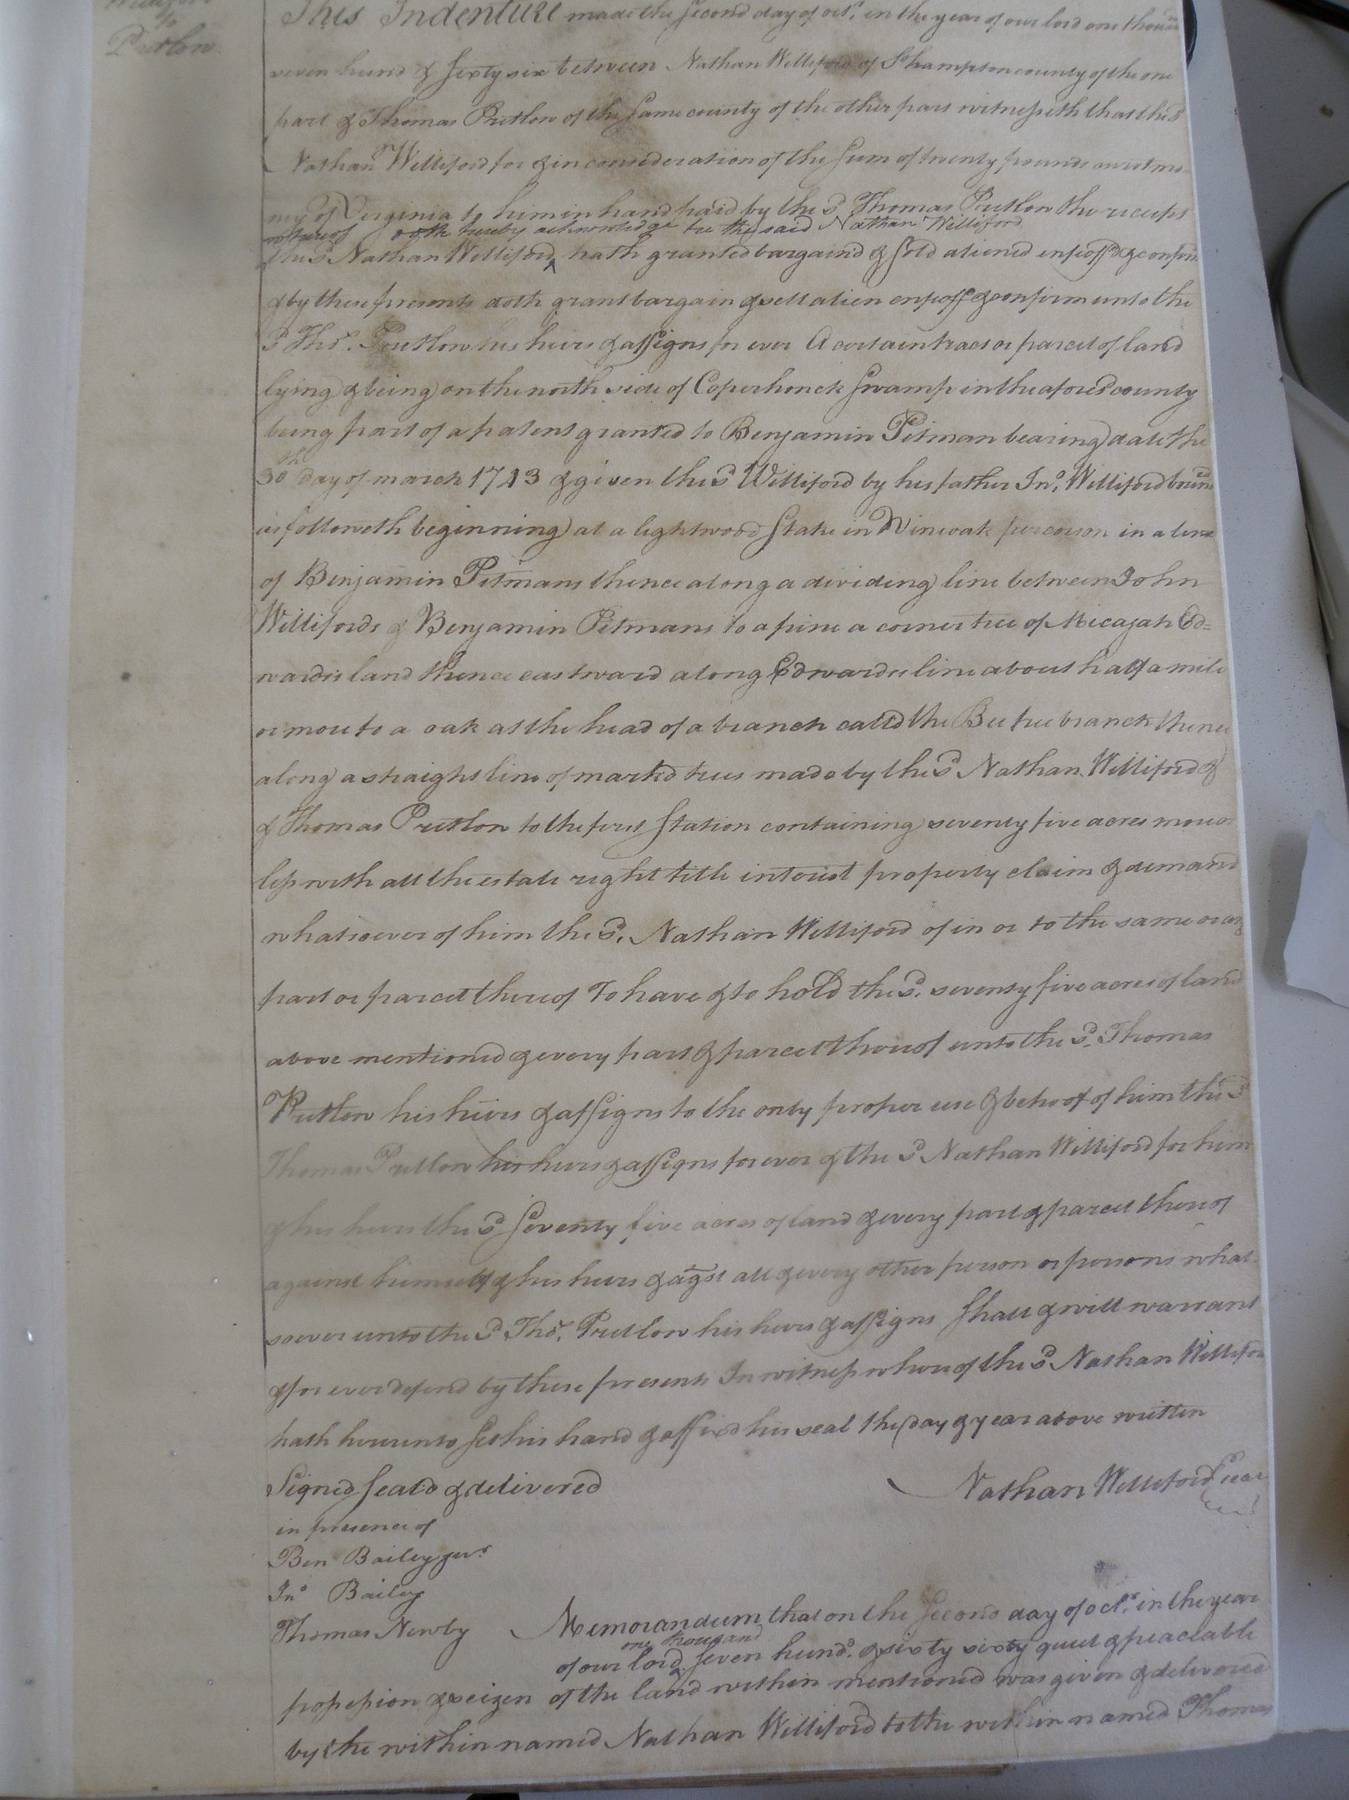 Williford
to
Pretlow
This Indenture made the Second day of octr. in the year of our lord one thousd
seven hund & Sixty six between Nathan Williford of So.hampton county of the one
part & Thomas Pretlow of the Same county of the other part witnesseth that the sd
Nathan Williford for & in consideration of the Sum of twenty pounds current mo-
ney of Virginia to him in hand paid by the sd Thomas Pretlow the receipt
whereof doth hereby acknowledge he the said Nathan Williford
the sd Nathan Williford ^ hath granted bargaind & Sold aliened enfeoffd & confirmd
& by these presents doth grant bargain & sell alien enfeoff & confirm unto the
sd Thos. Pretlow his heirs & assigns for ever A certain tract or parcel of land
lying & being on the north side of Coperhonck Swamp in the aforesd county
being part of a patent granted to Benjamin Pitman bearing date the
30th day of march 1743 & given the sd Williford by his father Jno. Williford bound
as followeth beginning at a lightwood Stake in Wineoak percoson in a line
of Benjamin Pitmans thence along a dividing line between John
Willifords & Benjamin Pitmans to a pine a corner tree of Micajah Ed=
wards's land thence eastward along Edwards's line about half a mile
or more to a oak at the head of a branch calld the Bee tree branch thence
along a straight line of markd trees made by the sd Nathan Williford &
& Thomas Pretlow to the first Station containing seventy five acres more or
less with all the estate right title interest property claim & demand
whatsoever of him the sd. Nathan Williford of in or to the same or any
part or parcel thereof To have & to hold the sd. seventy five acres of land
above mentioned & every part & parcel thereof unto the sd. Thomas
Pretlow his heirs & assigns to the only proper use & behoof of him the sd
Thomas Pretlow his heirs & assigns for ever & the sd Nathan Williford for him
& his heirs the sd Seventy five acres of land & every part & parcel thereof
against himself & his heirs & agst all & every other person or persons what-
soever unto the sd Thos. Pretlow his heirs & assigns Shall & will warrant
& for ever defend by these presents In witness whereof the sd Nathan Williford
hath hereunto Set his hand & affixd his seal the day & year above written
Signed Seald & delivered Nathan Williford Seal
in presence of
Ben Bailey junr
Jno Bailey
Thomas Newby Memorandum that on the Second day of octr. in the year
one thousand
of our lord ^ Seven hundd. & sixty sixty quiet & peaceable
possession & seizen of the land within mentioned was given & delivered
by the within named Nathan Williford to the within named Thomas